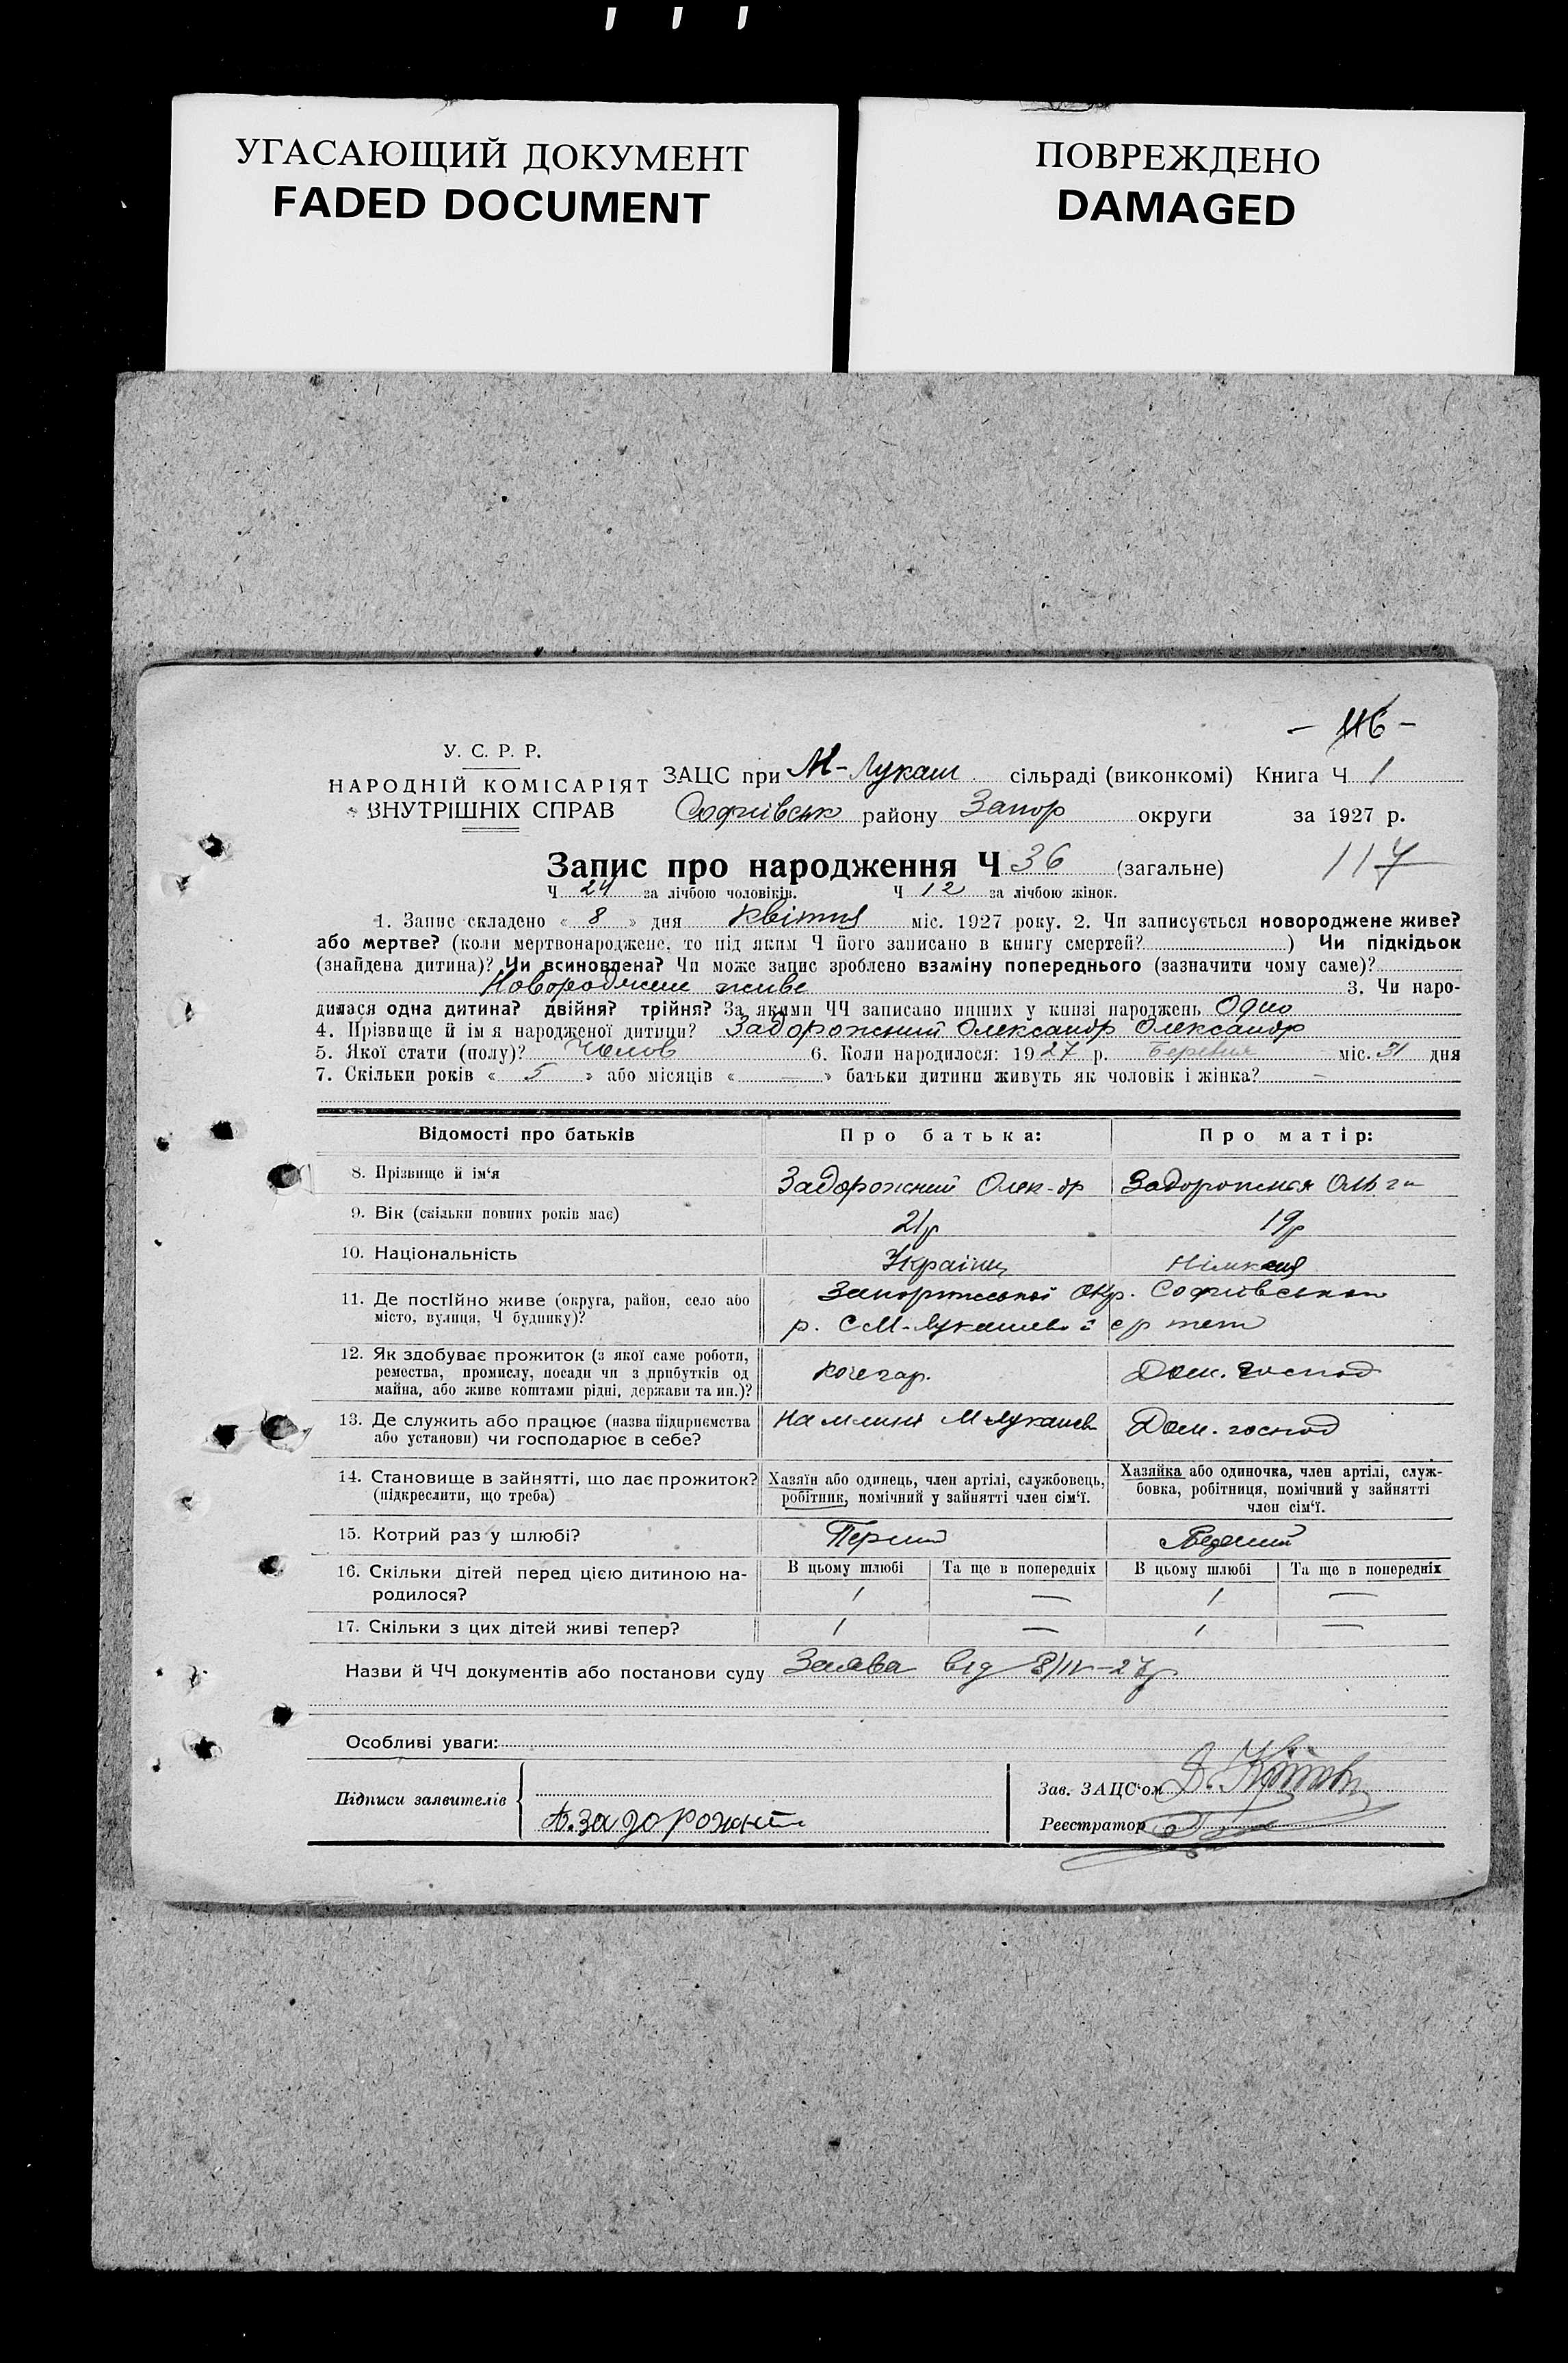 УГАСАЮЩИЙ ДОКУМЕНТ
FADED DOCUMENT
ПОВРЕЖДЕНО
DAMAGED
- 116 -
У. С. Р. Р.
НАРОДНІЙ КОМІСАРІЯТ
ВНУТРІШНІХ СПРАВ
ЗАЦС при М-Лукаш сільраді (виконкомі) Книга Ч 1
Софіївськ району Запор округи за 1927 р.
117
Запис про народження Ч 36 (загальне)
Ч 24 за лічбою чоловіків. Ч 12 за лічбою жінок.
1. Запис складено « 8 » дня квітня міс. 1927 року. 2. Чи записується новороджене живе?
або мертве? (коли мертвонароджене, то під яким Ч його записано в книгу смертей? ) Чи підкідьок
(знайдена дитина)? Чи всиновлена? Чи може запис зроблено взаміну попереднього (зазначити чому саме)?
Новороджене живе 3. Чи наро-
дилася одна дитина? двійня? трійня? За якими ЧЧ записано инших у книзі народжень Одно
4. Прізвище й ім'я народженої дитини? Задорожний Олександр Олександр
5. Якої стати (полу)? Чолов 6. Коли народилося: 1927 р. Березня міс. 31 дня
7. Скільки років « 5 » або місяців « — » батьки дитини живуть як чоловік і жінка? -
Відомості про батьків Про батька: Про матір:
8. Прізвище й ім‘я Задорожний Олек-др Задорожная Ольга
9. Вік (скільки повних років має) 21р 19р
10. Національність Українц Німкеня
11. Де постійно живе (округа, район, село або
місто, вулиця, Ч будинку)?
Запоріжської Окр. Софіївської
р. С М-Лукашево
12. Як здобуває прожиток (з якої саме роботи,
ремества, промислу, посади чи з прибутків од
майна, або живе коштами рідні, держави та ин.)?
кочегар. Дом. господ
13. Де служить або працює (назва підприємства
або установи) чи господарює в себе?
На млині М Лукашев Дом. господ
14. Становище в зайнятті, що дає прожиток?
(підкреслити, що треба)
Хазяїн або одинець, член артілі, службовець,
робітник, помічний у зайнятті член сім‘ї.
Хазяйка або одиночка, член артілі, служ-
бовка, робітниця, помічний у зайнятті
член сім‘ї.
15. Котрий раз у шлюбі? Перший Перший
16. Скільки дітей перед цією дитиною на-
родилося?
В цьому шлюбі Та ще в попередніх В цьому шлюбі Та ще в попередніх
1 — 1 —
17. Скільки з цих дітей живі тепер? 1 — 1 —
Назви й ЧЧ документів або постанови суду Заява від 8/IV-27р
Особливі уваги:
Підписи заявителів
Зав. ЗАЦС‘ом
Реєстратор